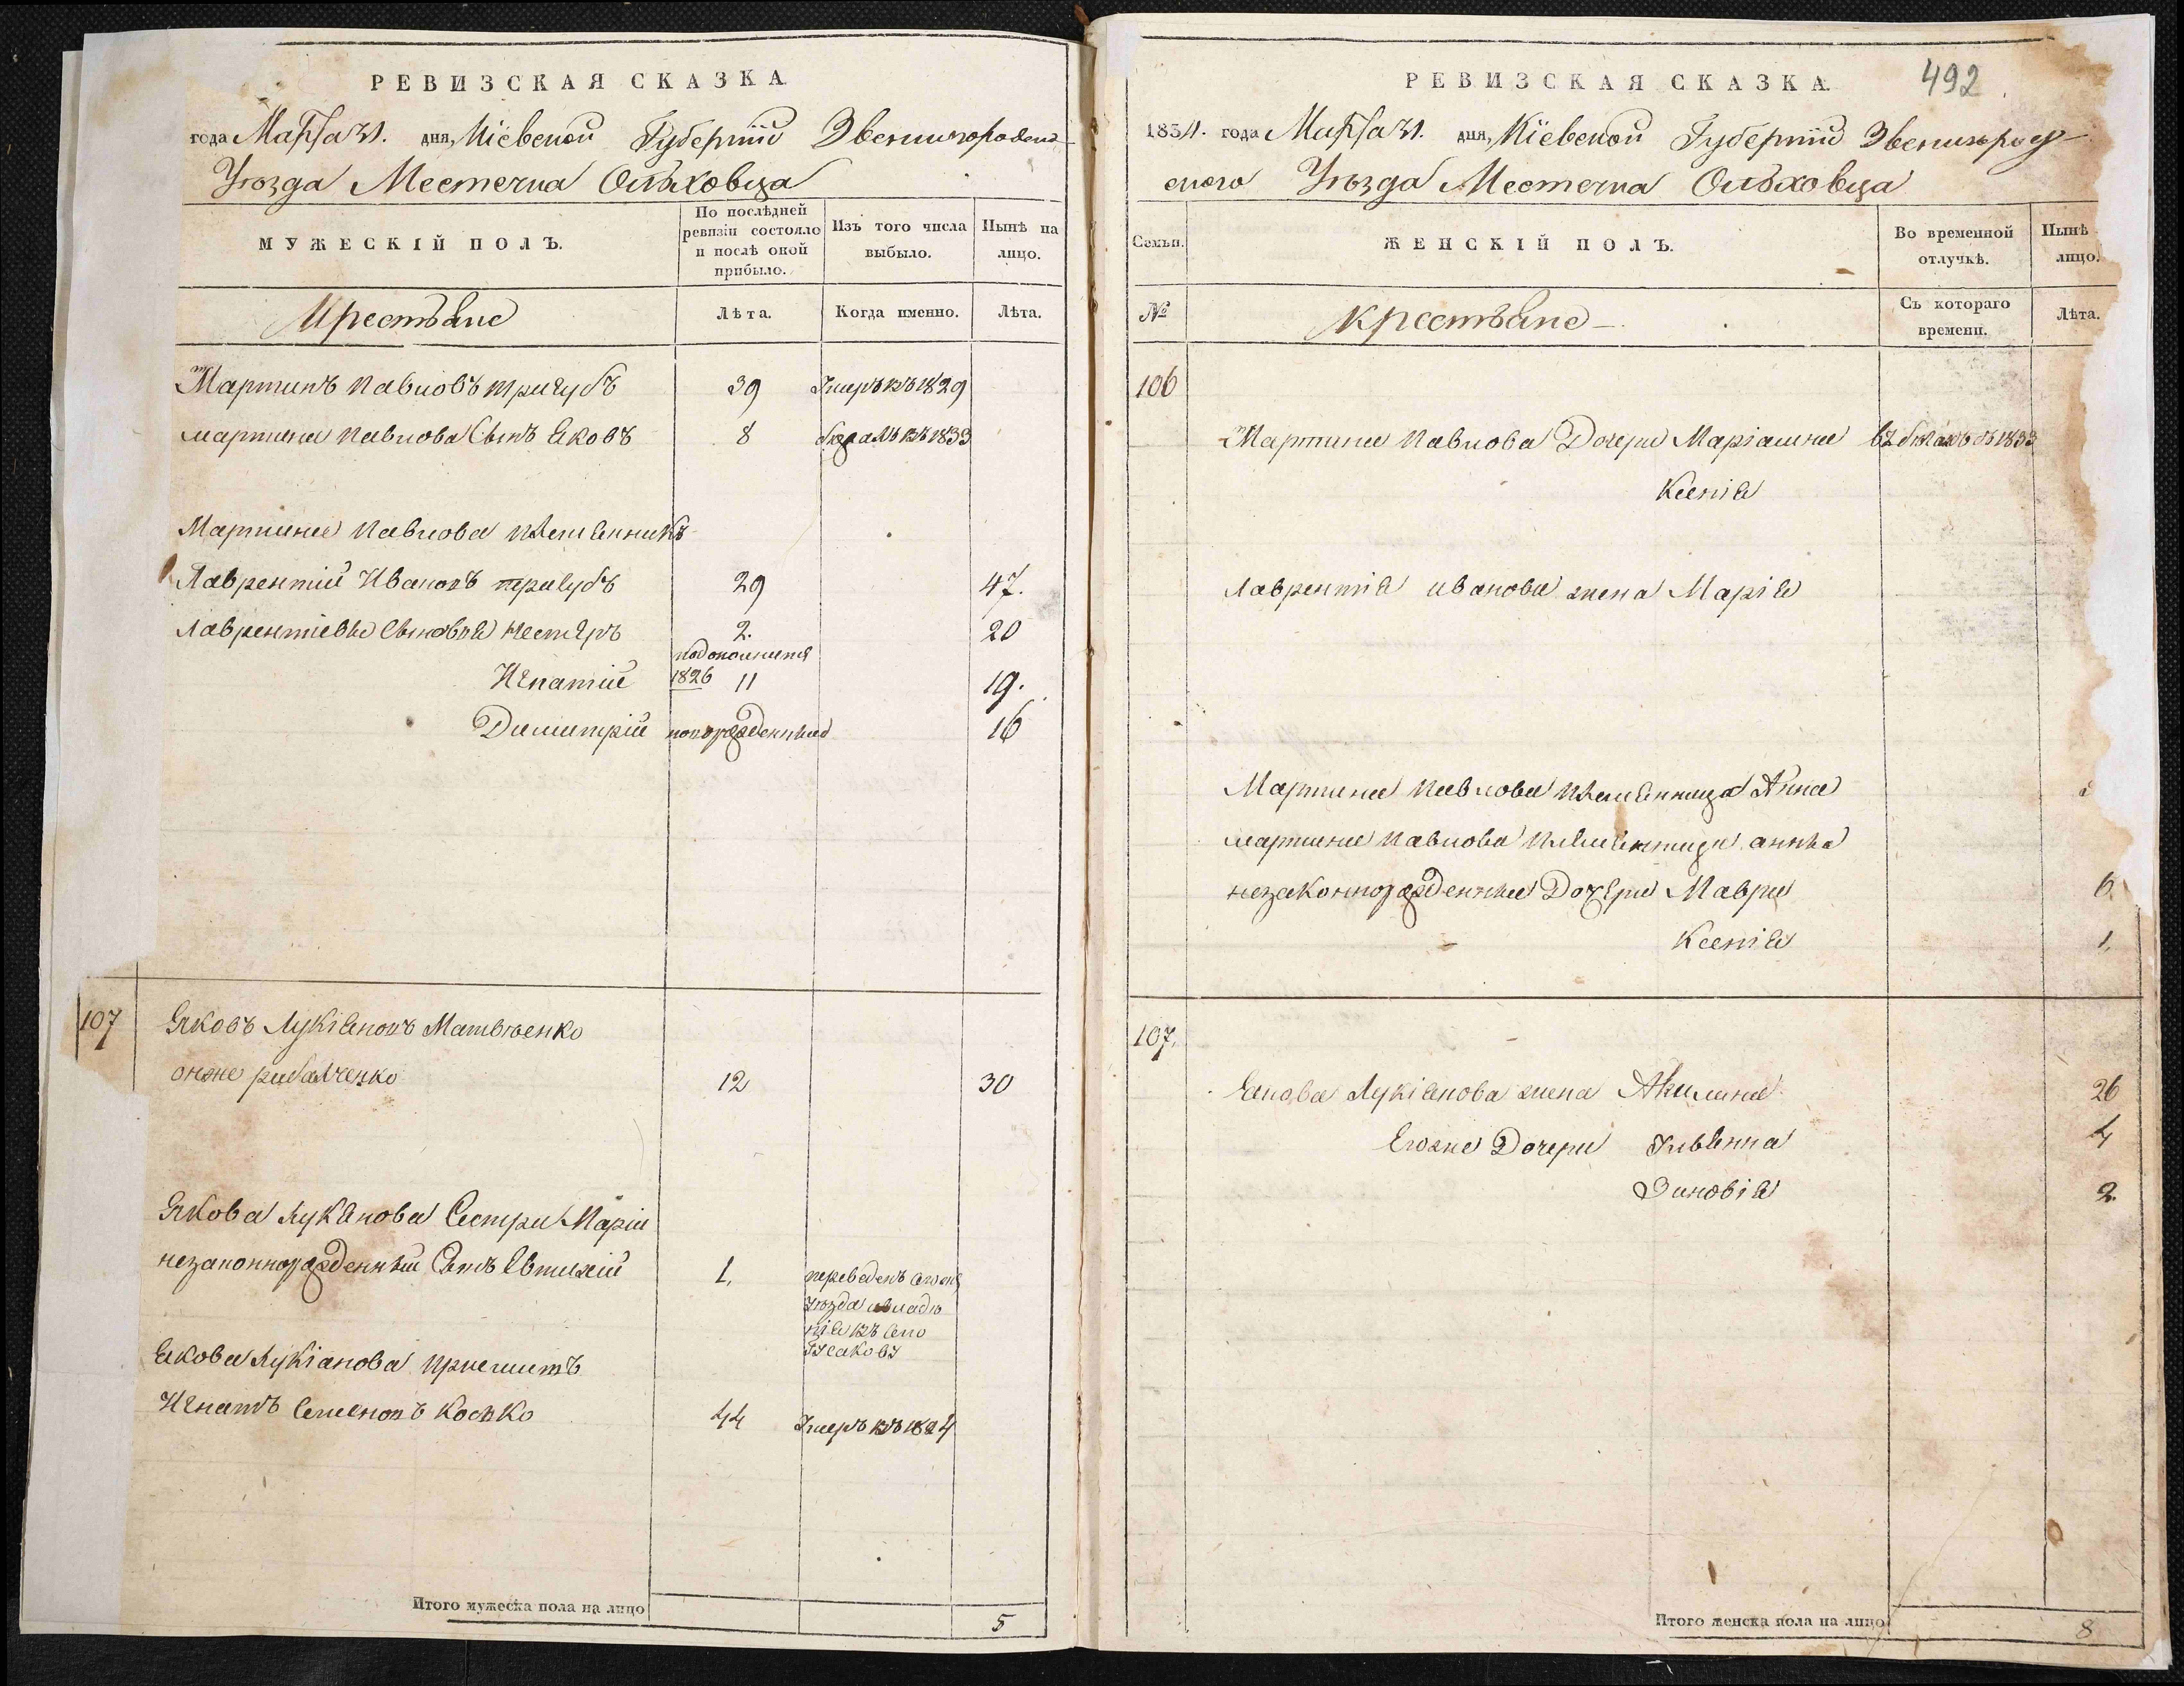 РЕВИЗСКАЯ СКАЗКА
года Марта 31. дня, Кіевской Губерніи Звенигородска
Уѣзда Местечка Ольховца
МУЖЕСКІЙ ПОЛЪ.
По послѣдней ревизіи состояло и послѣ оной прибыло.
Изъ того числа выбыло.
Нынѣ на лицо.
Крестьяне
Лѣта.
Когда именно.
Лѣта.
Мартинъ Павловъ Тригубъ 39 Умеръ въ 1829
Мартина Павлова Сынъ Яковъ 8 бежалъ въ 1833
Мартина Павлова племянникъ
Лаврентій Ивановъ тригубъ 29 47.
Лаврентіевы Сыновья Нестеръ 2. 20
Игнатій 1826 11 19.
Димитрій новорожденный 16
107 Яковъ Лукіяновъ Матвѣенко
онже рибалченко 12 30
Якова Лукянова Сестри Маріи
незаконнорожденный Сынъ Евтихій 1. переведенъ тогоже
уѣзда владѣ
нія въ село
Исаковъ
Якова Лукіанова приймитъ
Игнатъ Семеновъ Косько 44 Умеръ въ 1824
Итого мужеска пола на лицо 5
РЕВИЗСКАЯ СКАЗКА. 492
1834. года Марта 31. дня, Кіевской Губерніи Звенигород
ского Уѣзда Местечка Ольховца
Семьи.
ЖЕНСКІЙ ПОЛЪ.
Во временной отлучкѣ.
Нынѣ
лицо.
№
Крестьяне
Съ котораго времени.
Лѣта.
106
Мартина Павлова Дочери Маріанна въ бѣгахъ съ 1833
Ксенія
Лаврентія Иванова жена Марія
Мартина Павлова племянница Анна
Мартина Павлова племянници анны
незаконнорожденные Дочери Мавра 6.
Ксенія 1.
107.
Якова Лукіянова жена Акилина 26
Егоже Дочери Ульянна 4
Зиновія 2
Итого женска пола на лицо 8